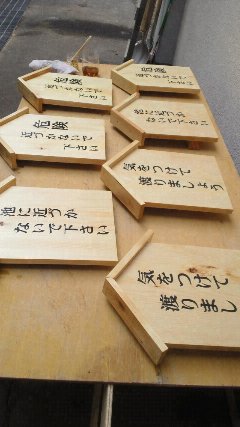 危険
近づかないで
下さい
危険
近づかないで
下さい
池に近づか
ないで下さい
危険
近づかないで
下さい
池に近づか
ないで下さい
気をつけて
渡りましょう
気をつけて
渡りまし